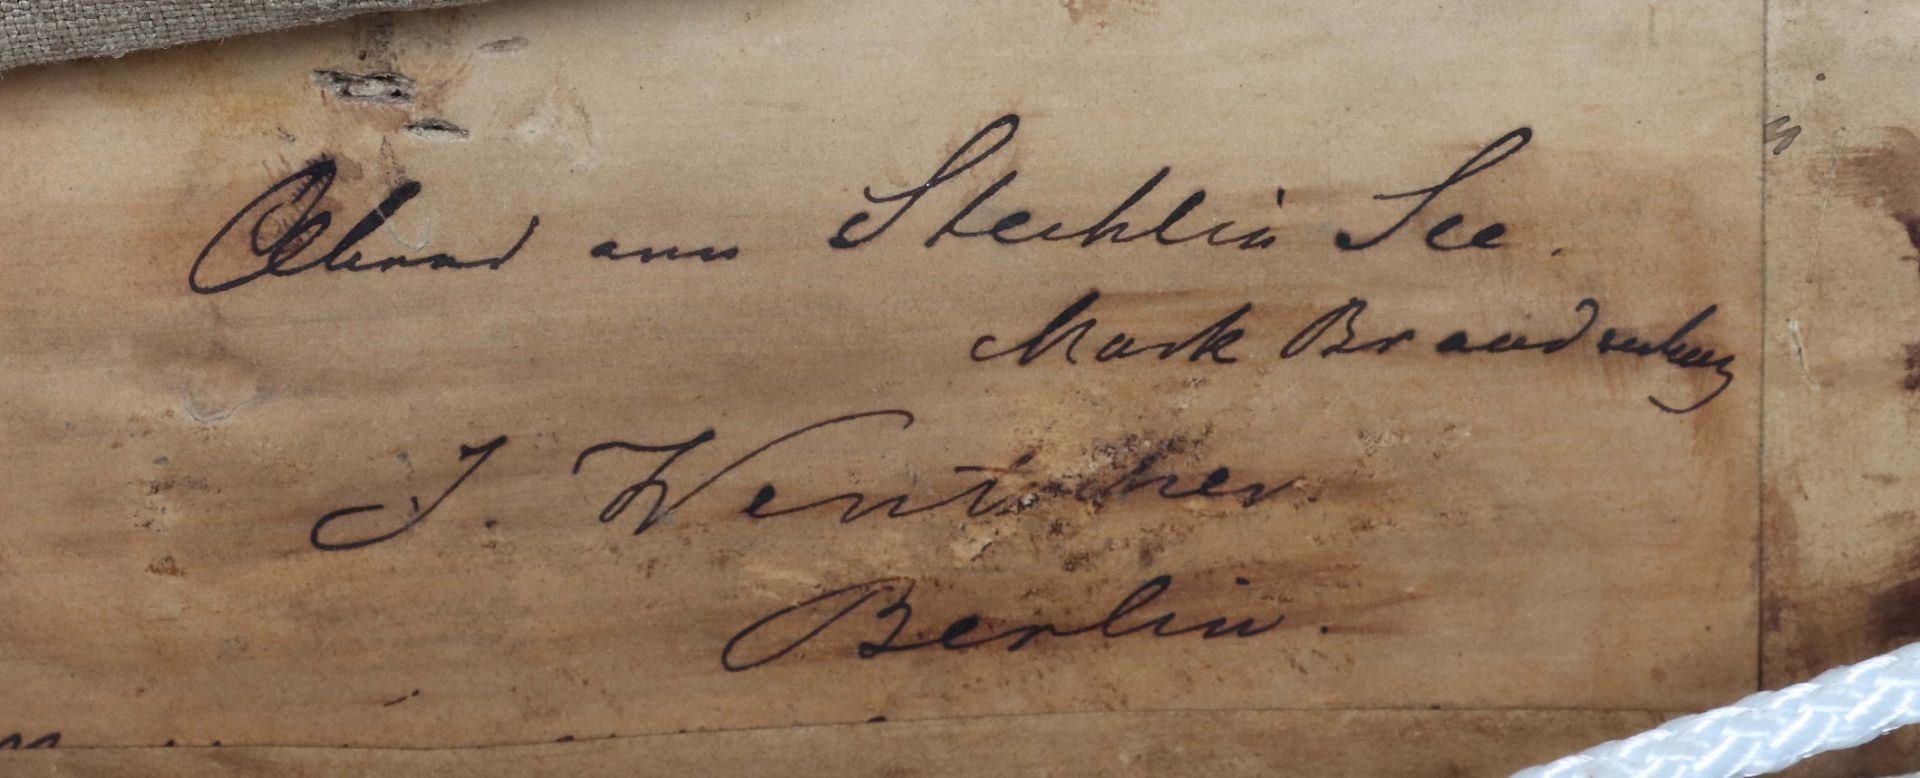 Abend am Stechlin See.
Mark Brandenburg
J. Wentscher.
Berlin.